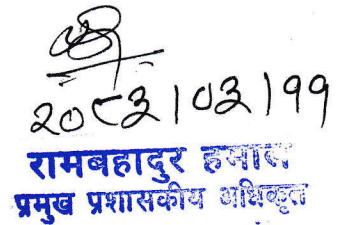 २०८३।०३।११
रामबहादुर हमाल
प्रमुख प्रशासकीय अधिकृत